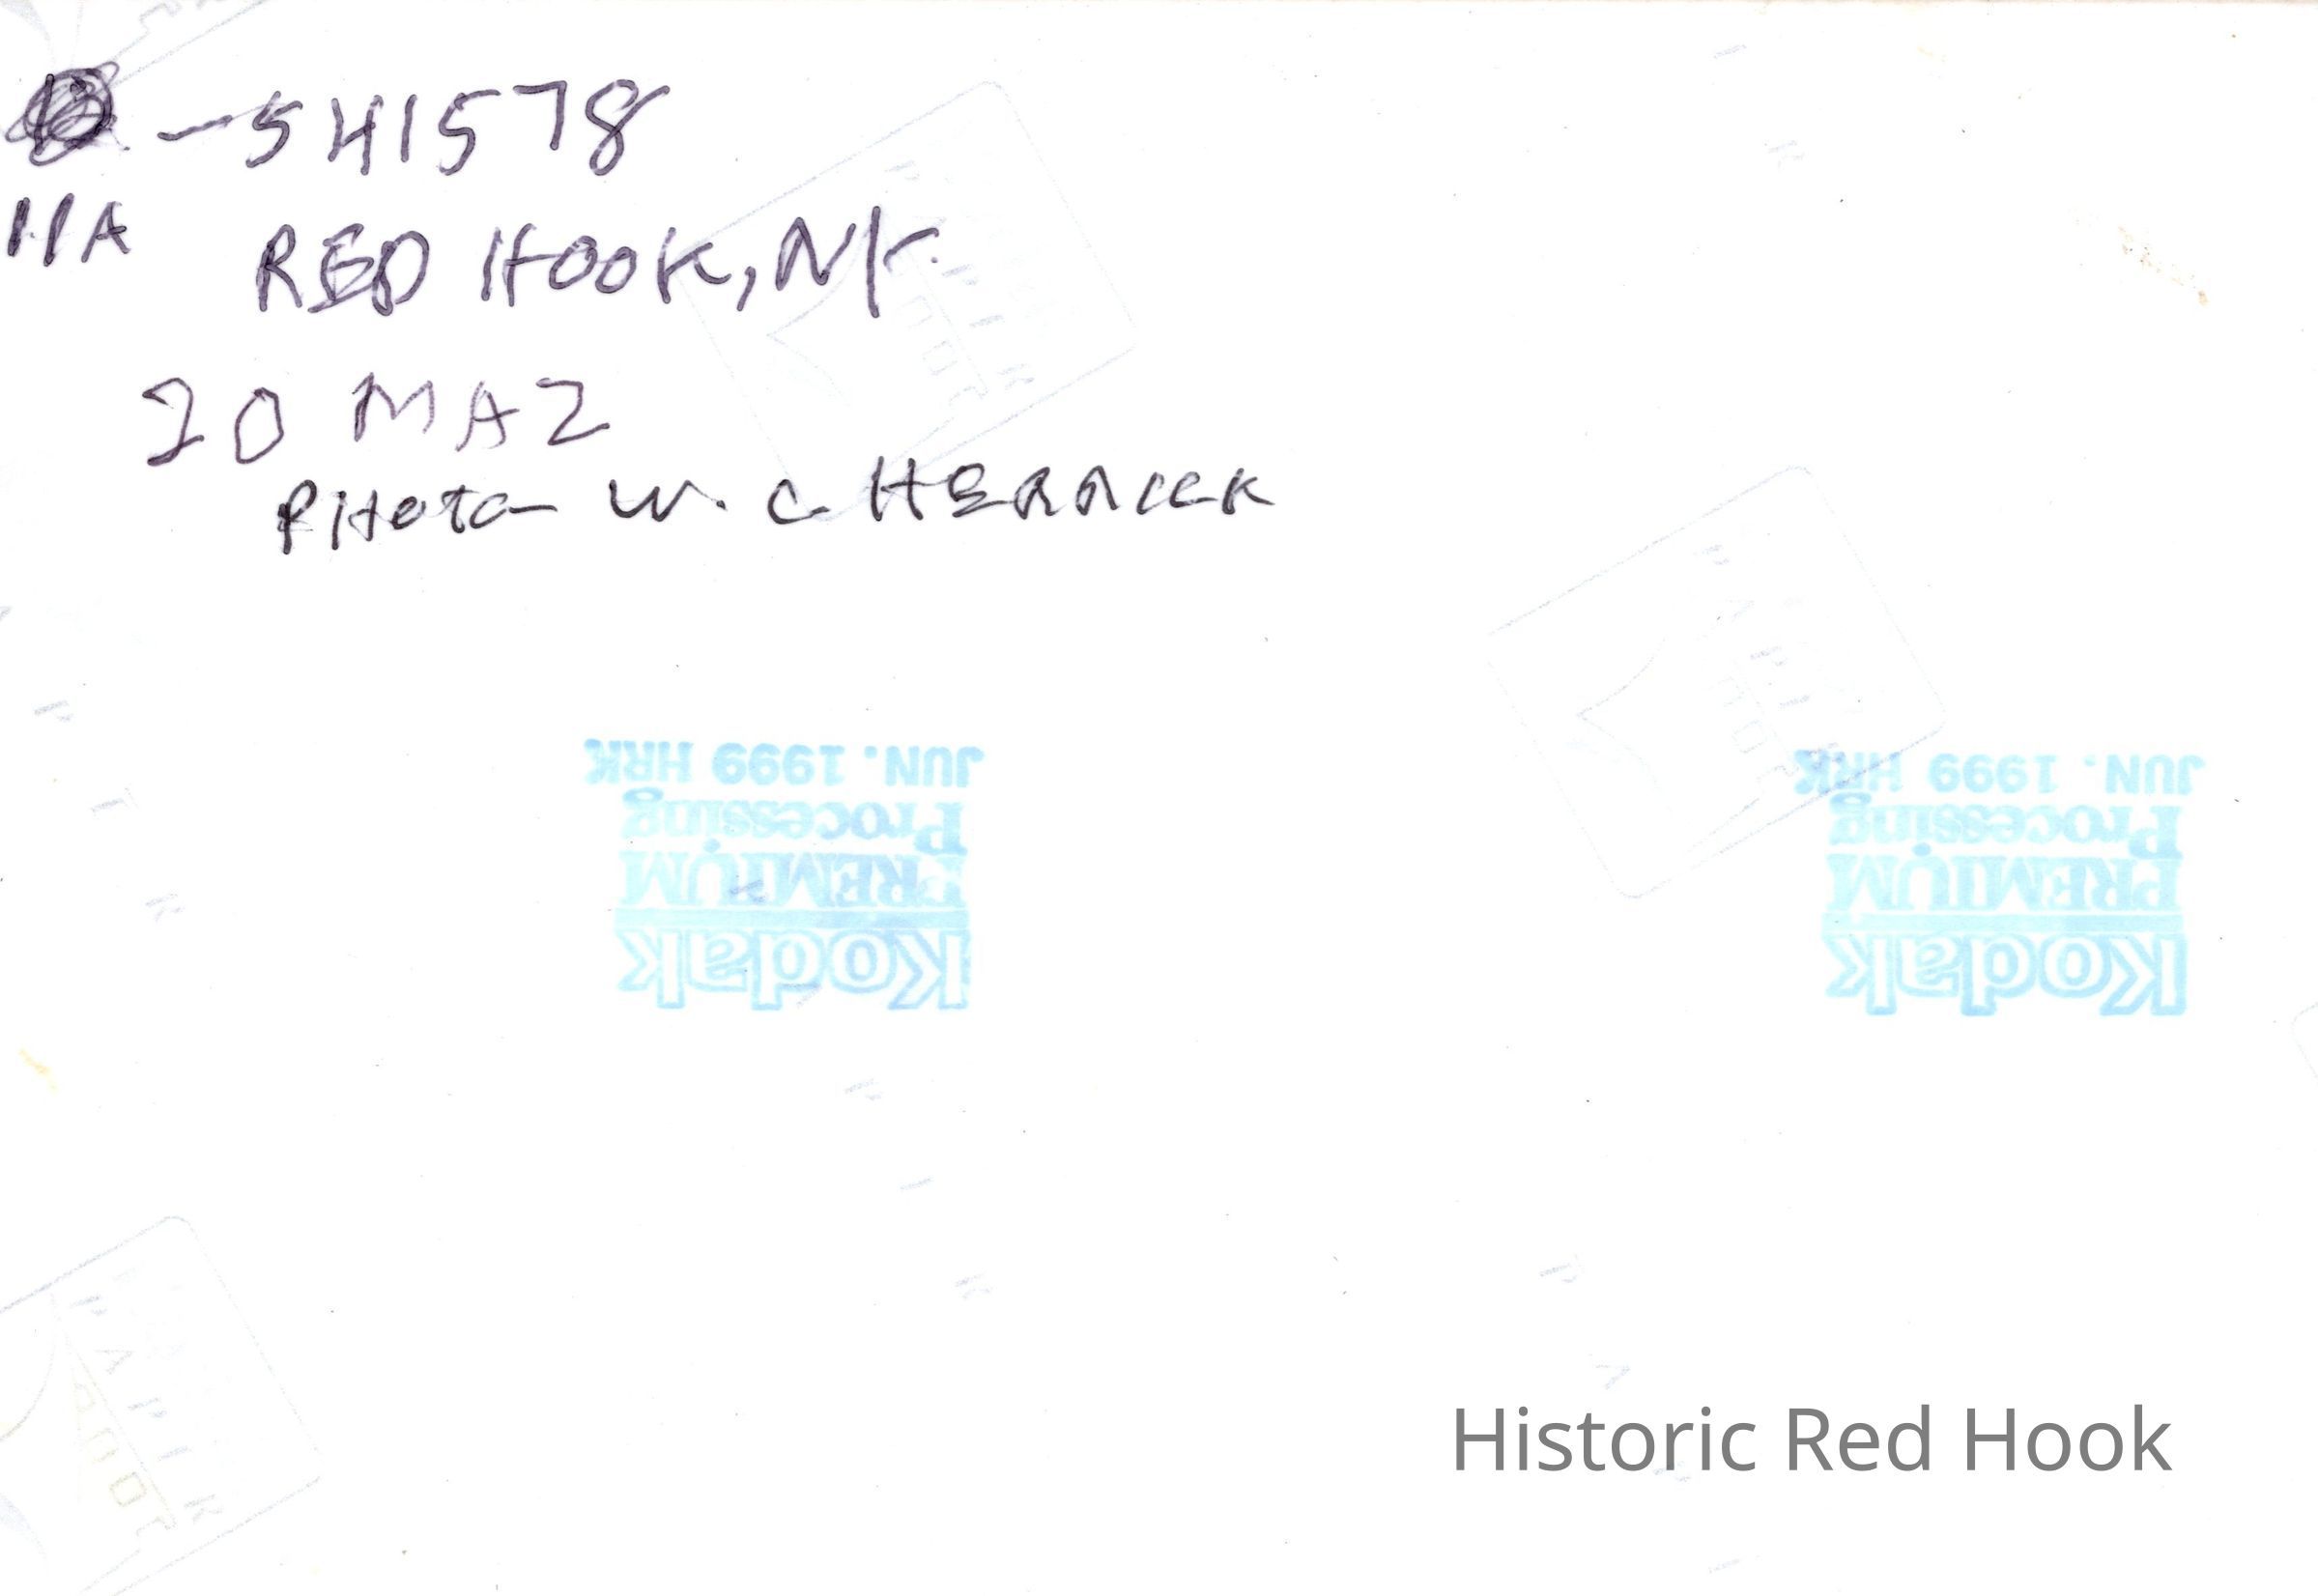 -541578
11A
RED HOOK, NY.
20 MAZ
PHOTO W. C HERRICK
JUN. 1999 HRK
Processing
PREMIUM
Kodak
JUN. 1999 HRK
Processing
PREMIUM
Kodak
Historic Red Hook